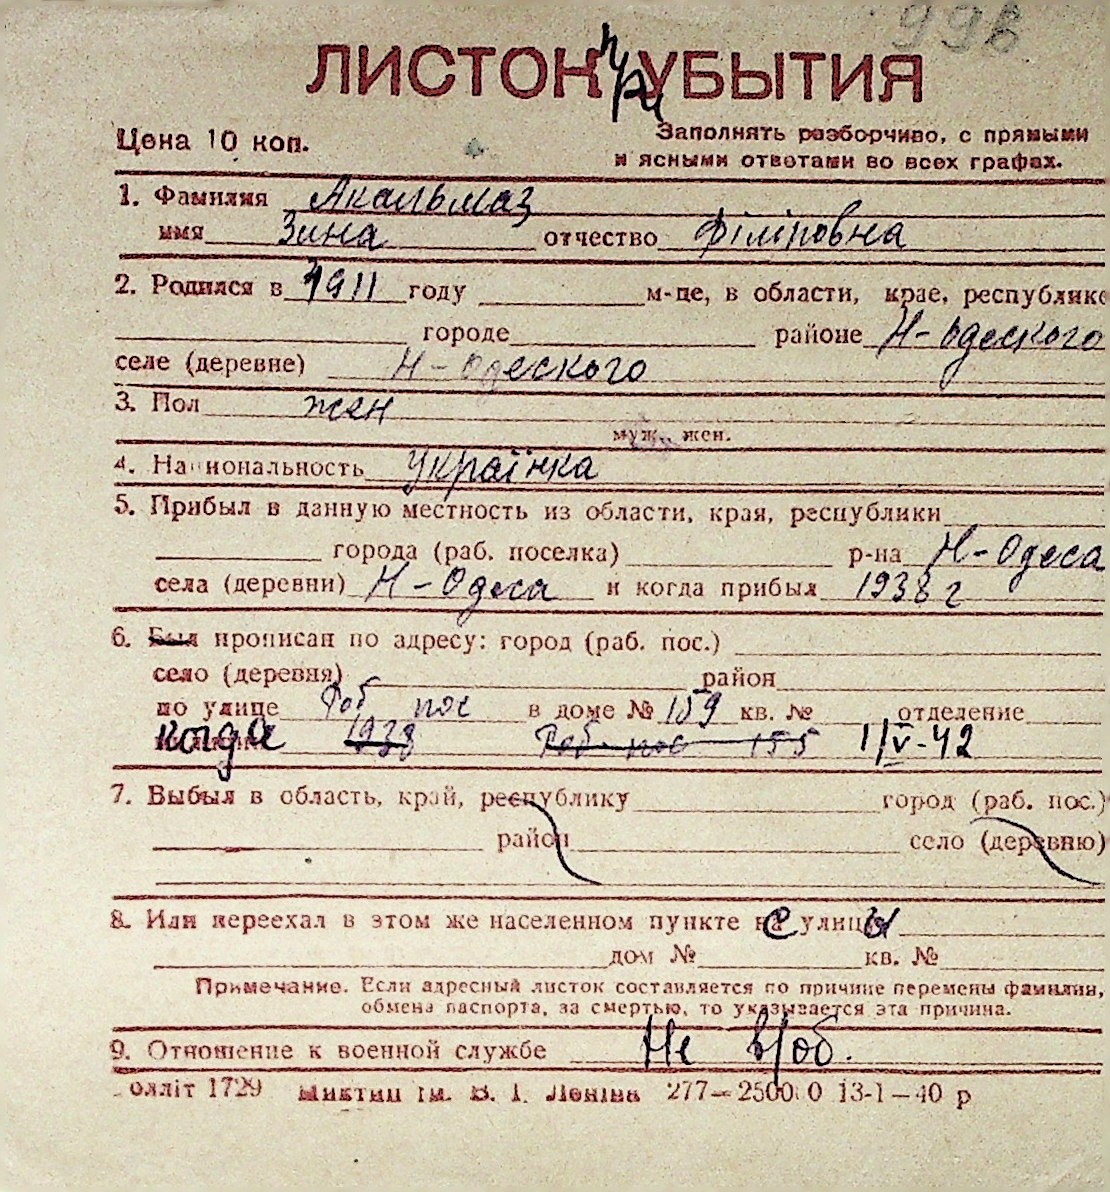 99в
ЛИСТОК при УБЫТИЯ
Цена 10 коп.
Заполнять разборчиво, с прямыми
и ясными ответами во всех графах.
1. Фамилия Акальмаз
имя Зина отчество Філіповна
2. Родился в 1911 году м-це, в области, крае, республике
городе районе Н-Одеского
селе (деревне) Н-Одеского
3. Пол жен
муж., жен.
4. Национальность українка
5. Прибыл в данную местность из области, края, республики
города (раб. поселка) р-на Н-Одеса
села (деревни) Н-Одеса и когда прибыл 1938 г
6. Был прописан по адресу: город (раб. пос.)
село (деревня) район
по улице Роб пос в доме № 159 кв. № отделение
когда 1938 Роб пос 155 1/V-42
7. Выбыл в область, край, республику город (раб. пос.)
район село (деревню)
8. Или переехал в этом же населенном пункте с улицы
дом № кв. №
Примечание. Если адресный листок составляется по причине перемены фамилии,
обмена паспорта, за смертью, то указывается эта причина.
9. Отношение к военной службе Не в/об.
олліт 1729 ім. В. І. Леніна 277—25000 13-1—40 р